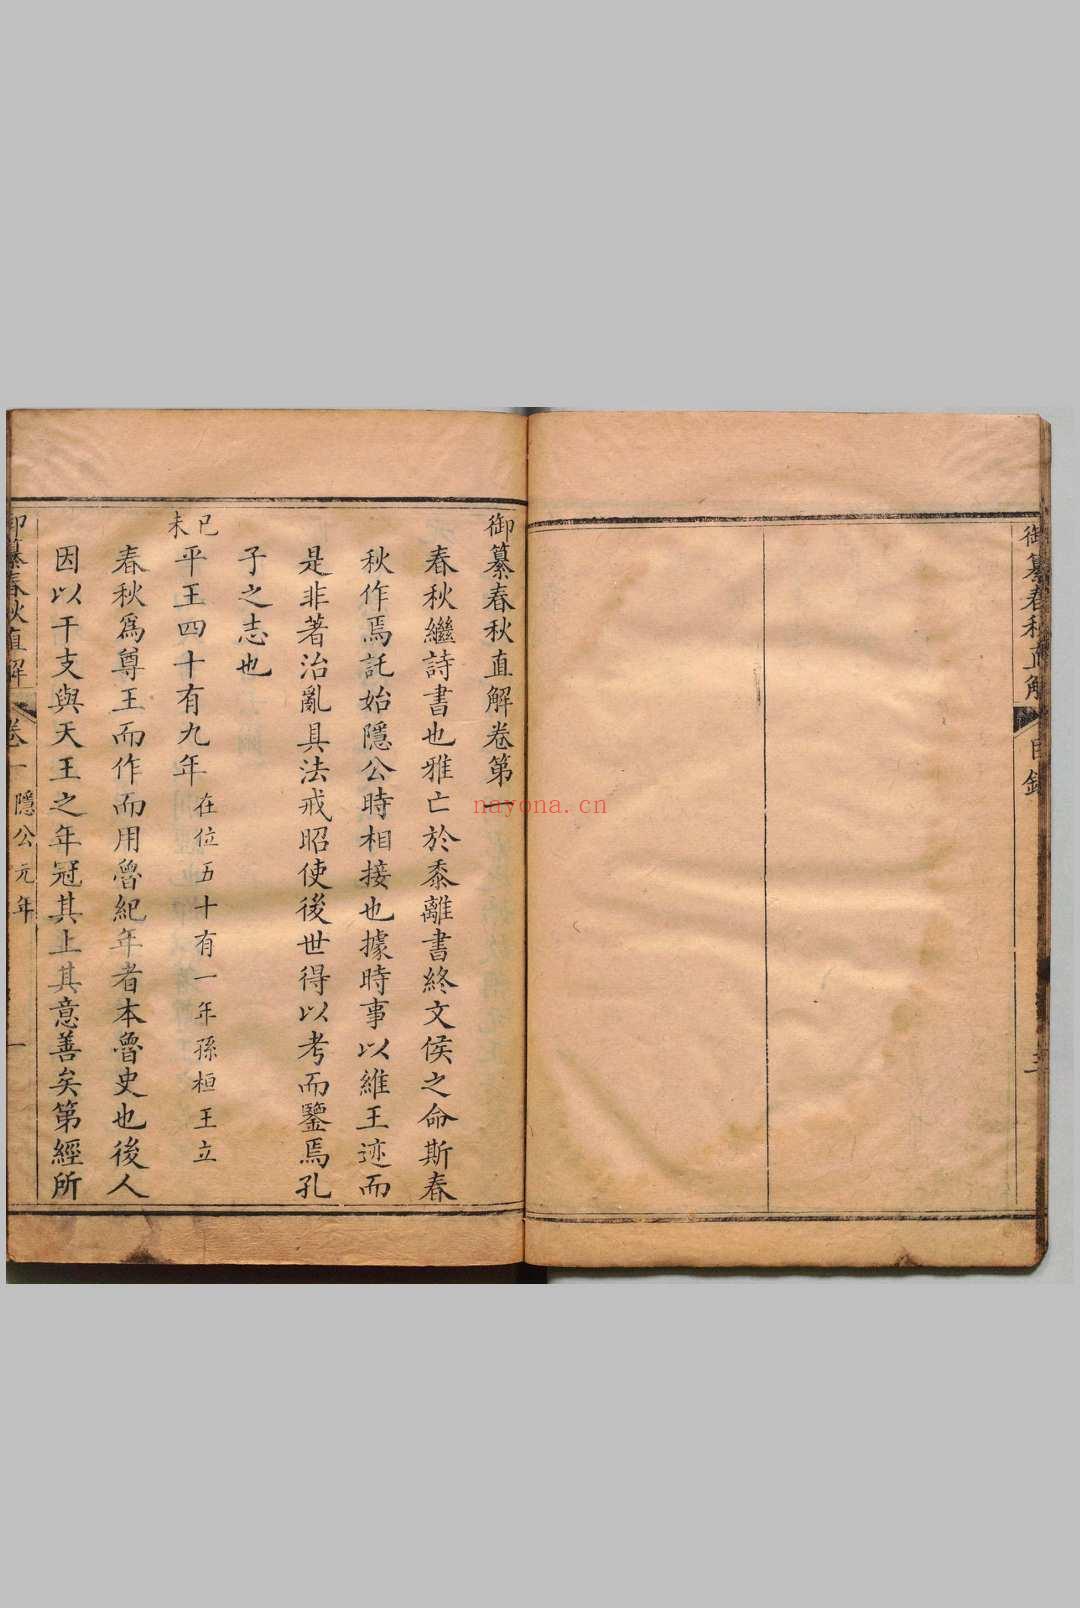 御纂春秋直解
目錄
三
御纂春秋直解卷第一
春秋繼詩書也雅亡於黍離書終文侯之命斯春
秋作焉託始隱公時相接也據時事以維王迹而
是非著治亂具法戒昭使後世得以考而鑒焉孔
子之志也
己未平王四十有九年在位五十有一年孫桓王立
春秋爲尊王而作而用魯紀年者本魯史也後人
因以干支與天王之年冠其上其意善矣第經所
御纂春秋直解
卷一
隱公元年
一
nayona.cn